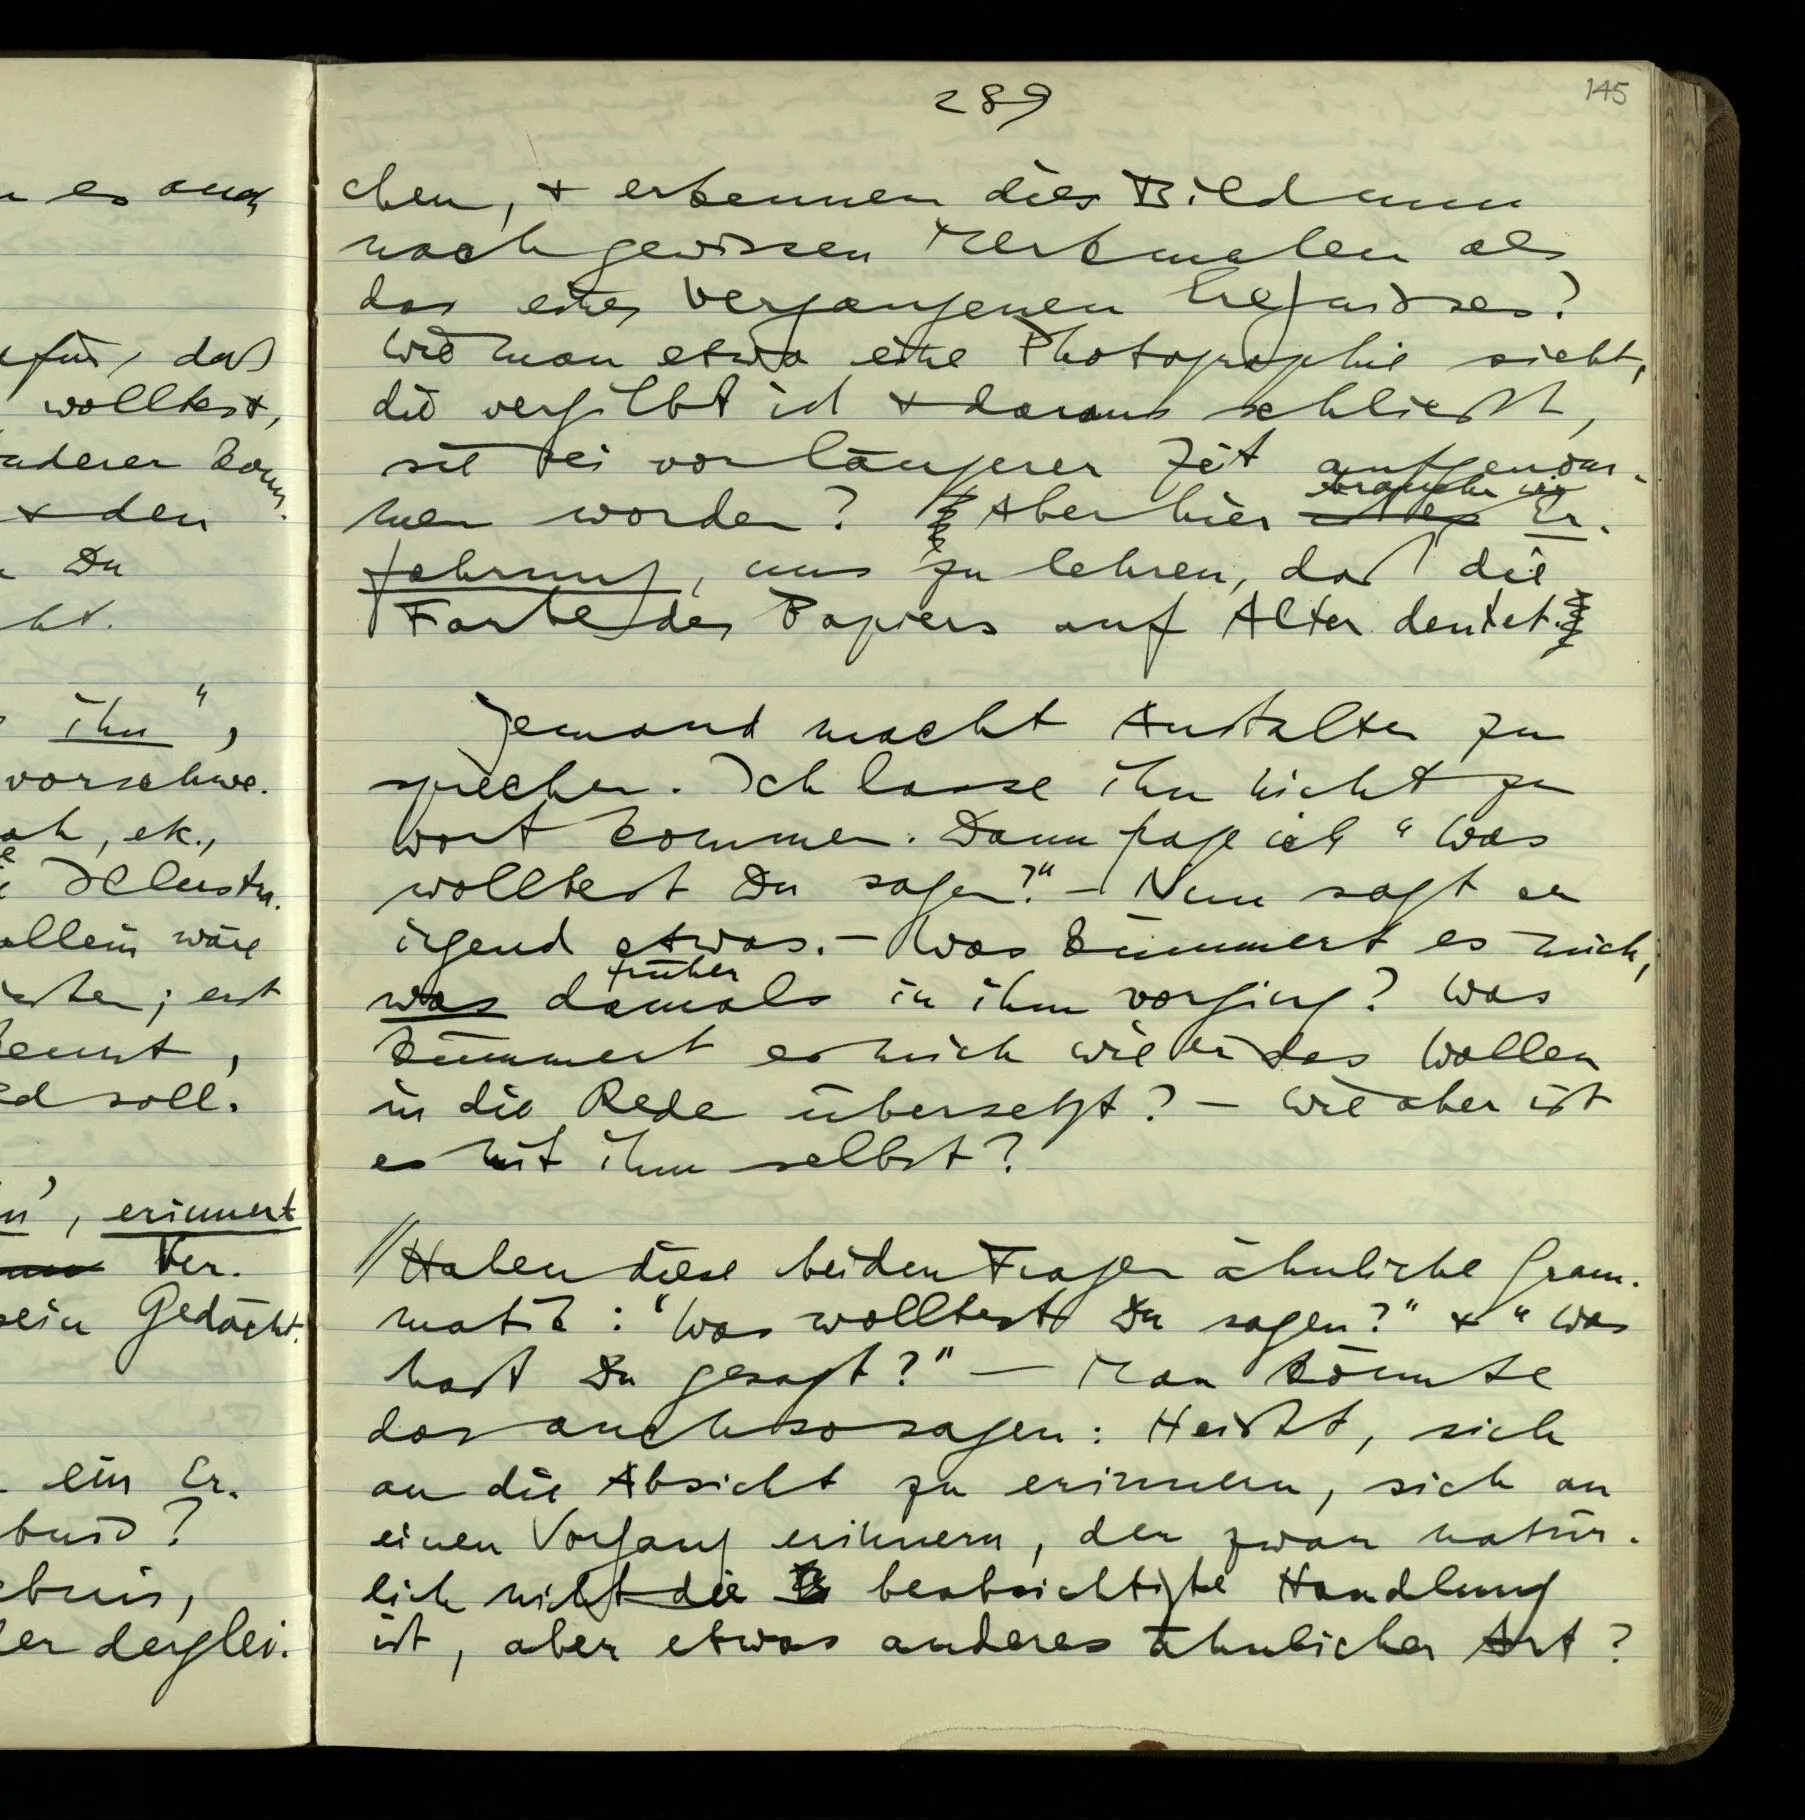 289
145
n es auch
afür, daß
wolltest,
anderer kom-
+ den
Du
ht.
ihn",
vorschwe-
ah, etc.,
Illustra-
allein wäre
; erst
kennt,
ld soll.
n', erinnert
Ver-
sein Gedächt-
ein Er-
bnis?
ebnis,
er derglei-
chen, + erkennen dies Bild nun
nach gewissen Merkmalen als
das eines vergangenen Ereignisses?
Wie man etwa eine Photographie sieht,
die vergilbt ist + daraus schließt,
sie sei vor längerer Zeit aufgenom-
men worden? Aber hier brauchen wir Er-
fahrung, uns zu lehren, daß die
Farbe des Papiers auf Alter deutet.
Jemand macht Anstalten zu
sprechen. Ich lasse ihn nicht zu
Wort kommen. Dann frage ich "Was
wolltest Du sagen?" – Nun sagt er
irgend etwas. – Was kümmert es mich,
früher
was damals in ihm vorging? Was
kümmert es mich wie er das Wollen
in die Rede übersetzt? – Wie aber ist
es mit ihm selbst?
//Haben diese beiden Fragen ähnliche Gram-
matik: "Was wolltest Du sagen?" + "Was
hast Du gesagt?" – Man könnte
das auch so sagen: Heißt, sich
an die Absicht zu erinnern, sich an
einen Vorgang erinnern, der zwar natür-
lich nicht die beabsichtigte Handlung
ist, aber etwas anderes ähnlicher Art?